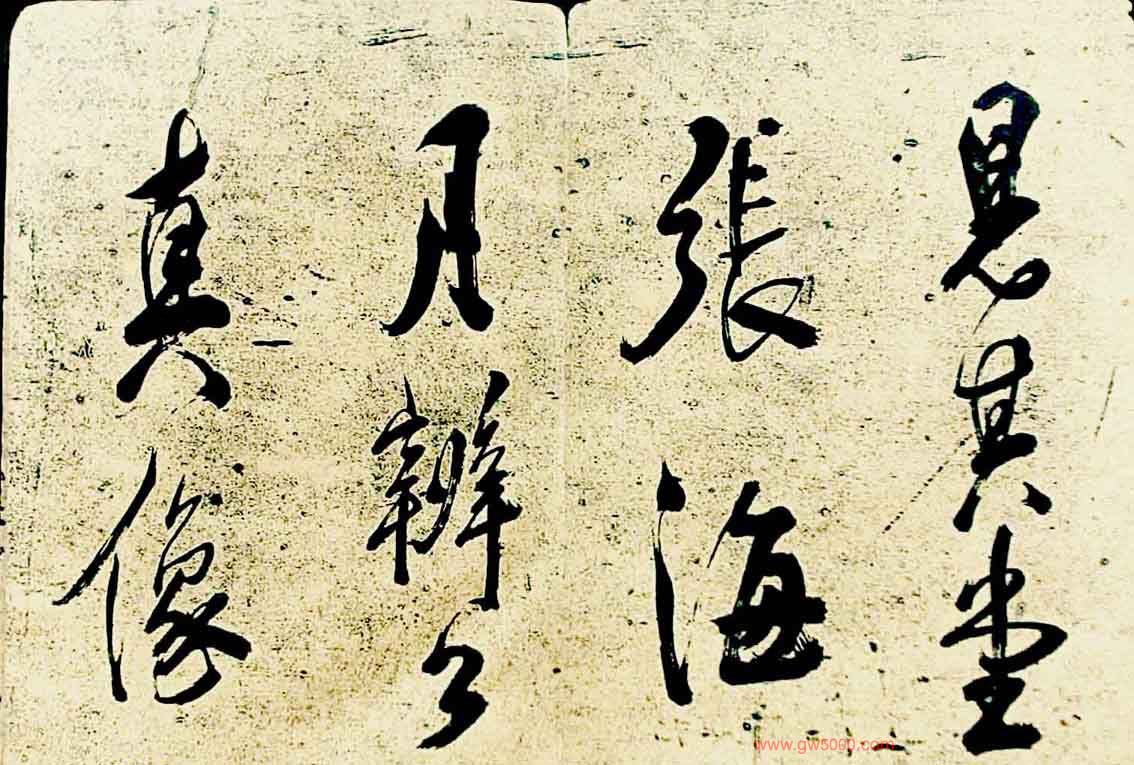 其堂
張海
月辨公
真像
www.gw5000.com